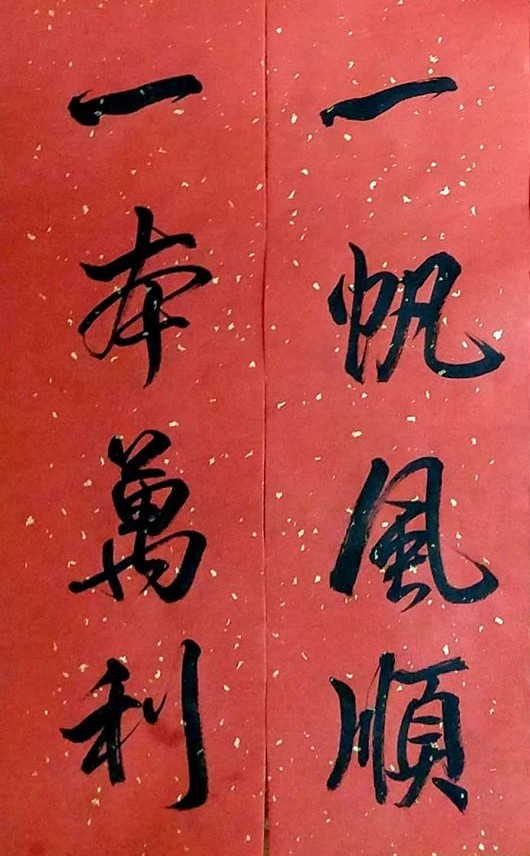 一帆風順
一本萬利